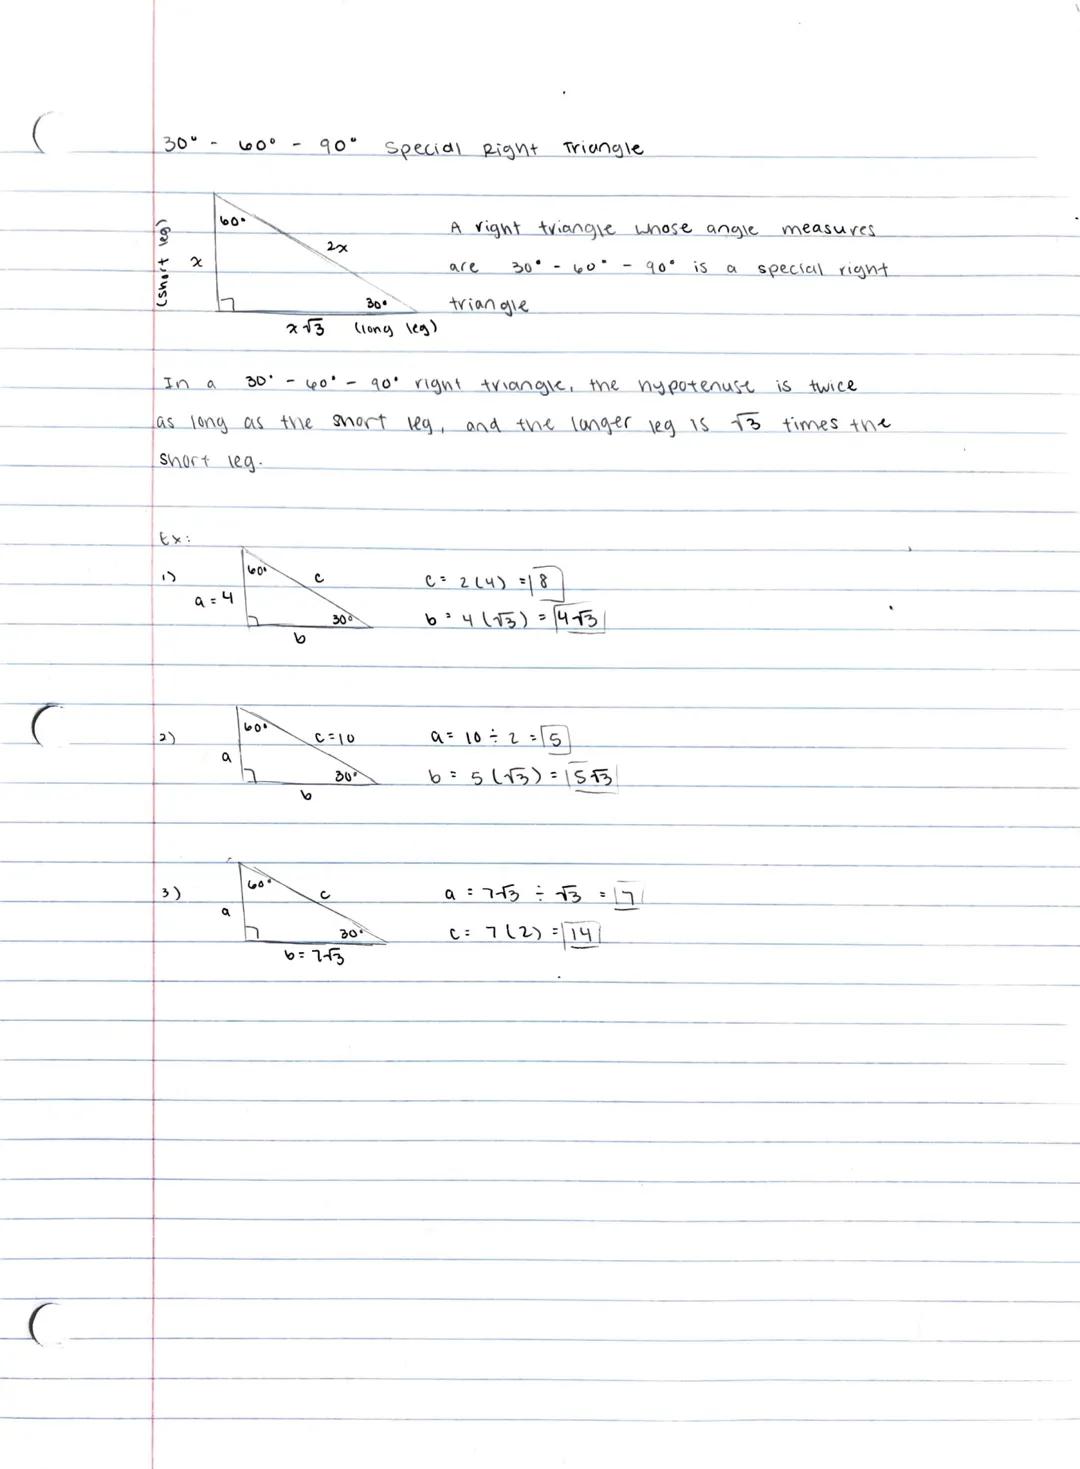 30° - 60° - 90° Special Right Triangle
60°
2x
(short leg)
x
30°
x√3 (long leg)
A right triangle whose angle measures
are 30° - 60° - 90° is a special right
triangle
In a 30° - 60° - 90° right triangle, the hypotenuse is twice
as long as the short leg, and the longer leg is √3 times the
short leg.
Ex:
1)
60°
c
a = 4
30°
b
c = 2(4) = 8
b = 4(√3) = 4√3
2)
60°
c=10
a
30°
b
a = 10 ÷ 2 = 5
b = 5(√3) = 5√3
3)
60°
c
a
30°
b = 7√3
a = 7√3 ÷ √3 = 7
c = 7(2) = 14